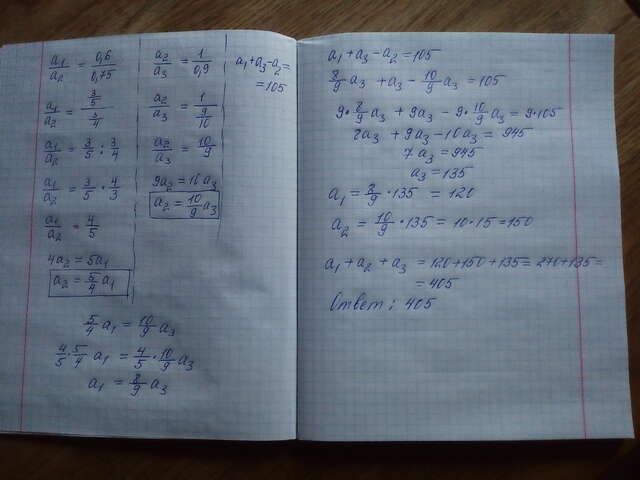 a₁/a₂ = 0,6/0,75
a₁/a₂ = (3/5)/(3/4)
a₁/a₂ = 3/5 : 3/4
a₁/a₂ = 3/5 · 4/3
a₁/a₂ = 4/5
4a₂ = 5a₁
a₂ = 5/4 a₁
a₂/a₃ = 1/0,9
a₂/a₃ = 1/(9/10)
a₂/a₃ = 10/9
9a₂ = 10a₃
a₂ = 10/9 a₃
a₁ + a₃ - a₂ =
= 105
5/4 a₁ = 10/9 a₃
4/5 · 5/4 a₁ = 4/5 · 10/9 a₃
a₁ = 8/9 a₃
a₁ + a₃ - a₂ = 105
8/9 a₃ + a₃ - 10/9 a₃ = 105
9 · 8/9 a₃ + 9a₃ - 9 · 10/9 a₃ = 9 · 105
8a₃ + 9a₃ - 10a₃ = 945
7a₃ = 945
a₃ = 135
a₁ = 8/9 · 135 = 120
a₂ = 10/9 · 135 = 10 · 15 = 150
a₁ + a₂ + a₃ = 120 + 150 + 135 = 270 + 135 =
= 405
Ответ: 405